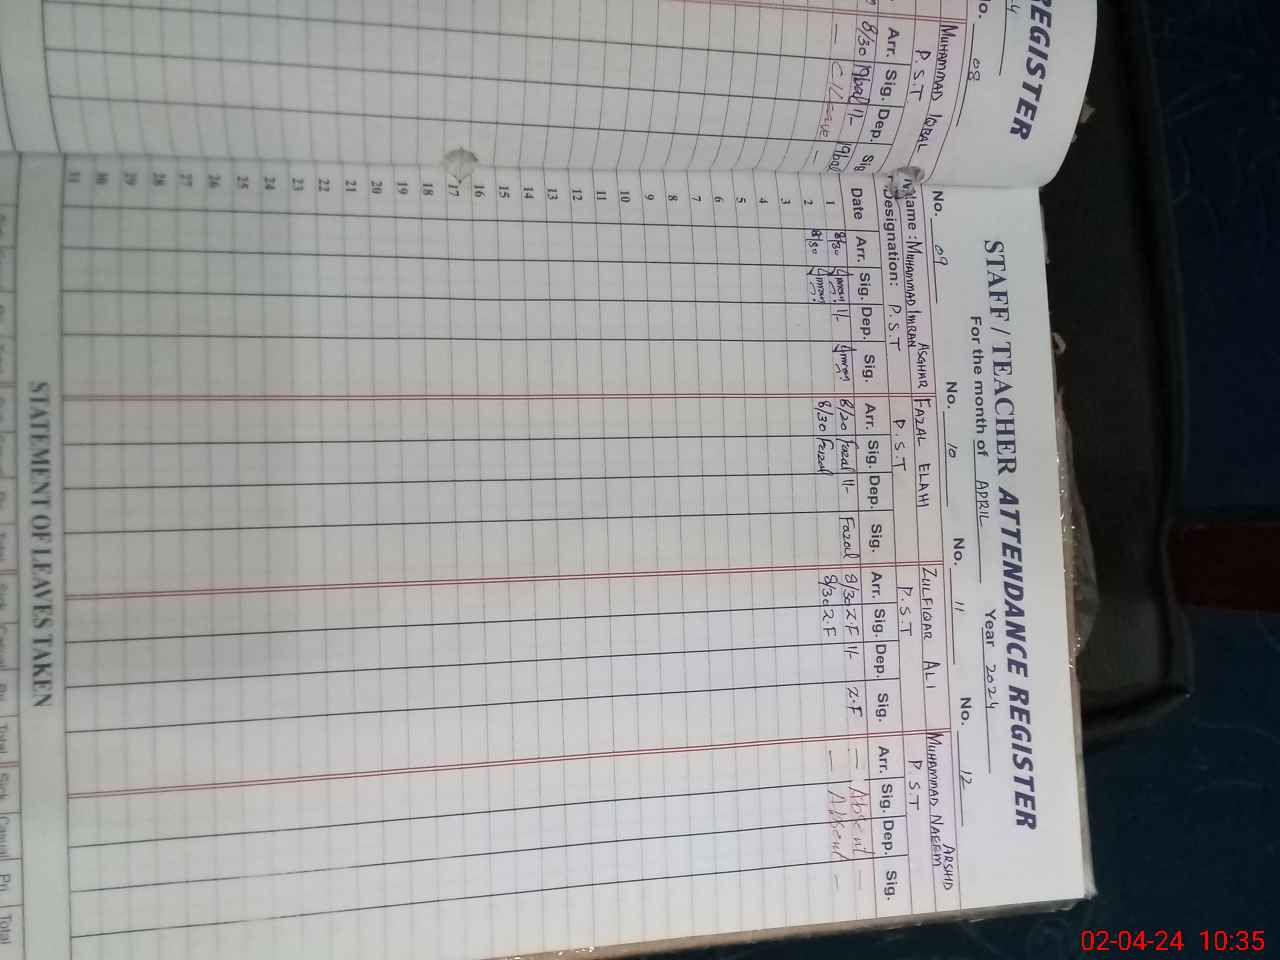 REGISTER
No. 08
MUHAMMAD IQBAL
P.S.T
Arr. Sig. Dep. Sig
8/30 Iqbal 11- Iqbal
— C/Leave —
STAFF / TEACHER ATTENDANCE REGISTER
For the month of APRIL Year 2024
No. 09 No. 10 No. 11 No. 12
Name : MUHAMMAD IMRAN ASGHAR FAZAL ELAHI ZULFIQAR ALI MUHAMMAD NAEEM ARSHD
Designation: P.S.T P.S.T P.S.T P.S.T
Date Arr. Sig. Dep. Sig. Arr. Sig. Dep. Sig. Arr. Sig. Dep. Sig. Arr. Sig. Dep. Sig.
1 8/30 Imran 11- Imran 8/20 Fazal 11- Fazal 8/30 Z.F 11- Z.F — Absent —
2 8/30 Imran 8/30 Fazal 8/30 Z.F — Absent —
3
4
5
6
7
8
9
10
11
12
13
14
15
16
17
18
19
20
21
22
23
24
25
26
27
28
29
30
31
STATEMENT OF LEAVES TAKEN
Total Sick Casual Pri Total Sick Casual Pri Total
02-04-24 10:35